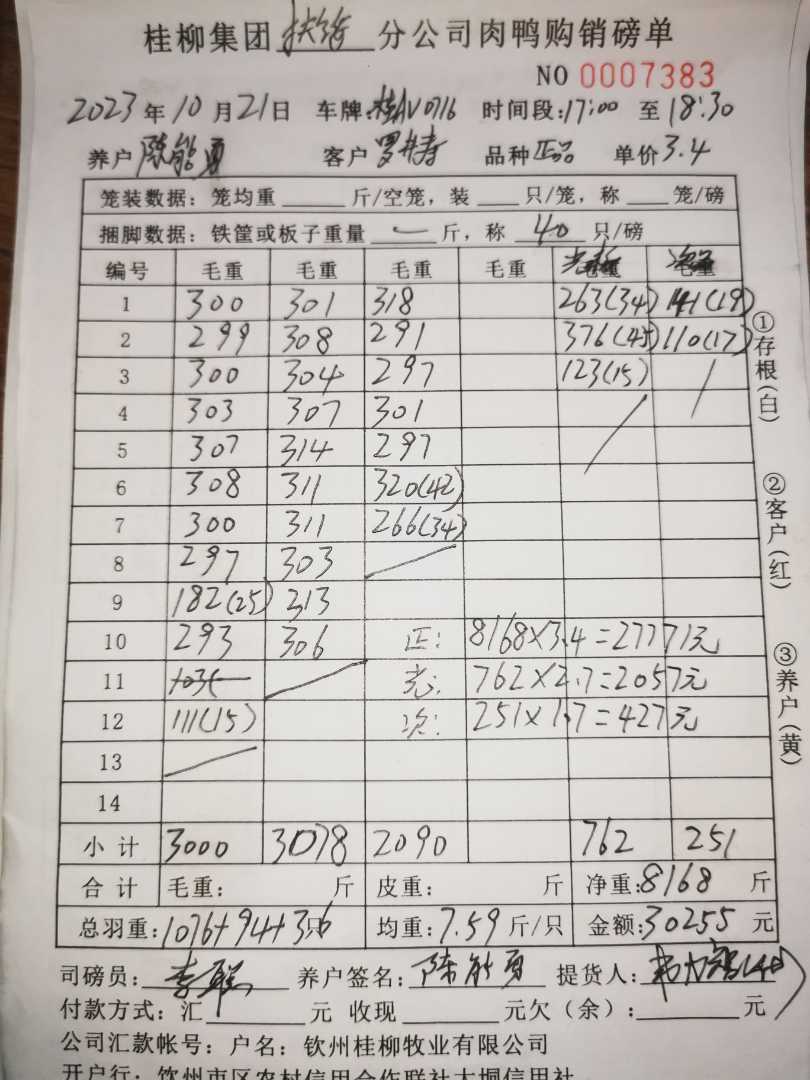 桂柳集团扶绥分公司肉鸭购销磅单
NO 0007383
2023年10月21日 车牌:桂AV0716 时间段:17:00 至 18:30
养户 陈能勇 客户 品种 正品 单价 3.4
笼装数据：笼均重____斤/空笼，装____只/笼，称____笼/磅
捆脚数据：铁筐或板子重量____斤，称 40 只/磅
编号 毛重 毛重 毛重 毛重
1 300 301 318 263(34) 141(19)
2 299 308 291 376(45) 110(17)
3 300 304 297 123(15)
4 303 307 301
5 307 314 297
6 308 311 320(42)
7 300 311 266(34)
8 297 303
9 182(25) 313
10 293 306 正: 8168×3.4=27771元
11 光: 762×2.7=2057元
12 111(15) 次: 251×1.7=427元
13
14
小计 3000 3078 2090 762 251
合计 毛重: 斤 皮重: 斤 净重:8168 斤
总羽重:1076+94+36 均重:7.59斤/只 金额:30255元
司磅员: 养户签名:陈能勇 提货人:
付款方式：汇____元 收现____元欠（余）:____元
公司汇款帐号：户名：钦州桂柳牧业有限公司
开户行：钦州市区农村信用合作联社大垌信用社
①存根(白)
②客户(红)
③养户(黄)